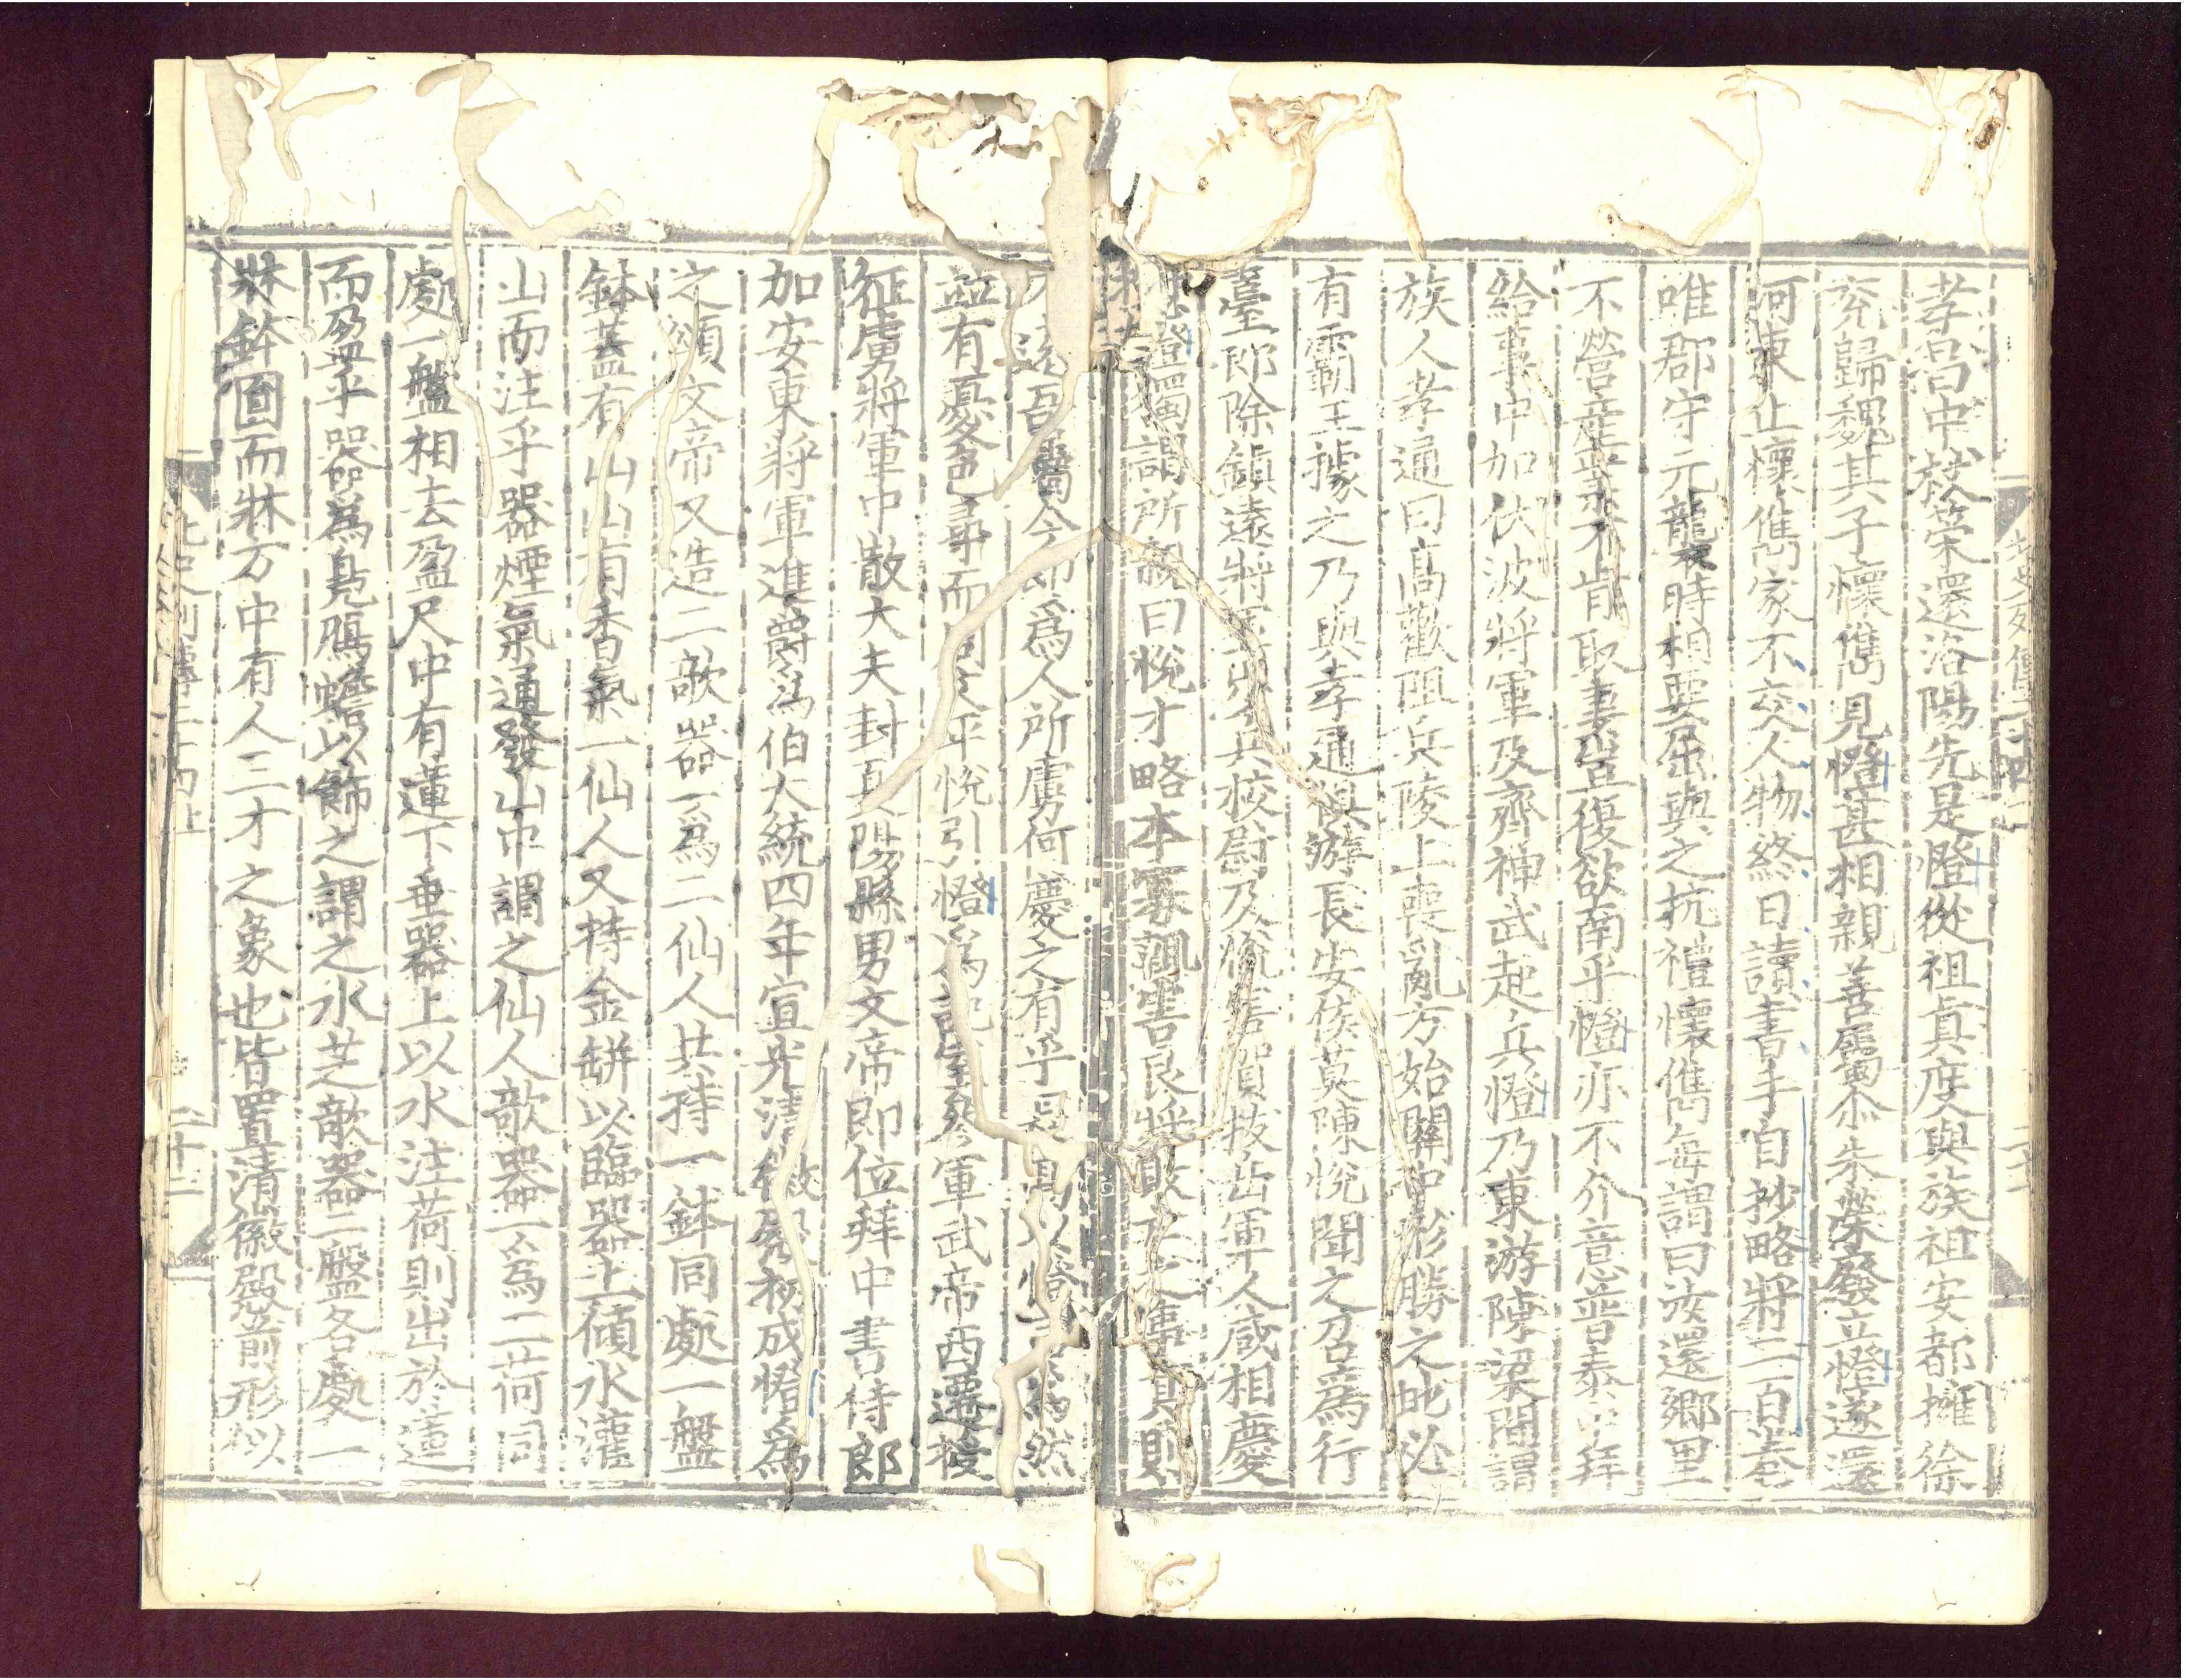 孝昌中杖策還洛陽先是憕從祖眞度與族祖安都擁徐
兖歸魏其子懷儁見憕甚相親善屬尒朱榮廢立憕遂還
河東止懷儁家不交人物終日讀書手自抄略將二百卷
唯郡守元襲時相要屈與之抗禮懷儁每謂曰汝還鄉里
不營産業不肯取妻豈復欲南乎憕亦不介意普泰中拜
給事中加伏波將軍及齊神武起兵憕乃東游陳梁間謂
族人孝通曰高歡阻兵陵上喪亂方始關中形勝之地必
有霸王據之乃與孝通俱游長安侯莫陳悅聞之召爲行
臺郎除鎭遠將軍步兵校尉及悅害賀拔岳軍人咸相慶
憕獨謂所親曰悅才略本寡輒害良將敗亡之事其則
不遠吾屬今即爲人所虜何慶之有乎長高以憕言爲然
並有憂色尋而周文平悅引憕爲記室參軍武帝西遷授
征虜將軍中散大夫封夏陽縣男文帝即位拜中書侍郎
加安東將軍進爵爲伯大統四年宣光淸徽殿初成憕爲
之頌文帝又造二欹器一爲二仙人共持一鉢同處一盤
鉢蓋有山山有香氣一仙人又持金缾以臨器上傾水灌
山而注乎器煙氣通發山中謂之仙人欹器一爲二荷同
處一盤相去盈尺中有蓮下垂器上以水注荷則出於蓮
而盈乎器爲鳧鴈蟾以飾之謂之水芝欹器二盤各處一
牀鉢圓而牀方中有人三才之象也皆置清徽殿前形似
北史列傳二十四上
二十二